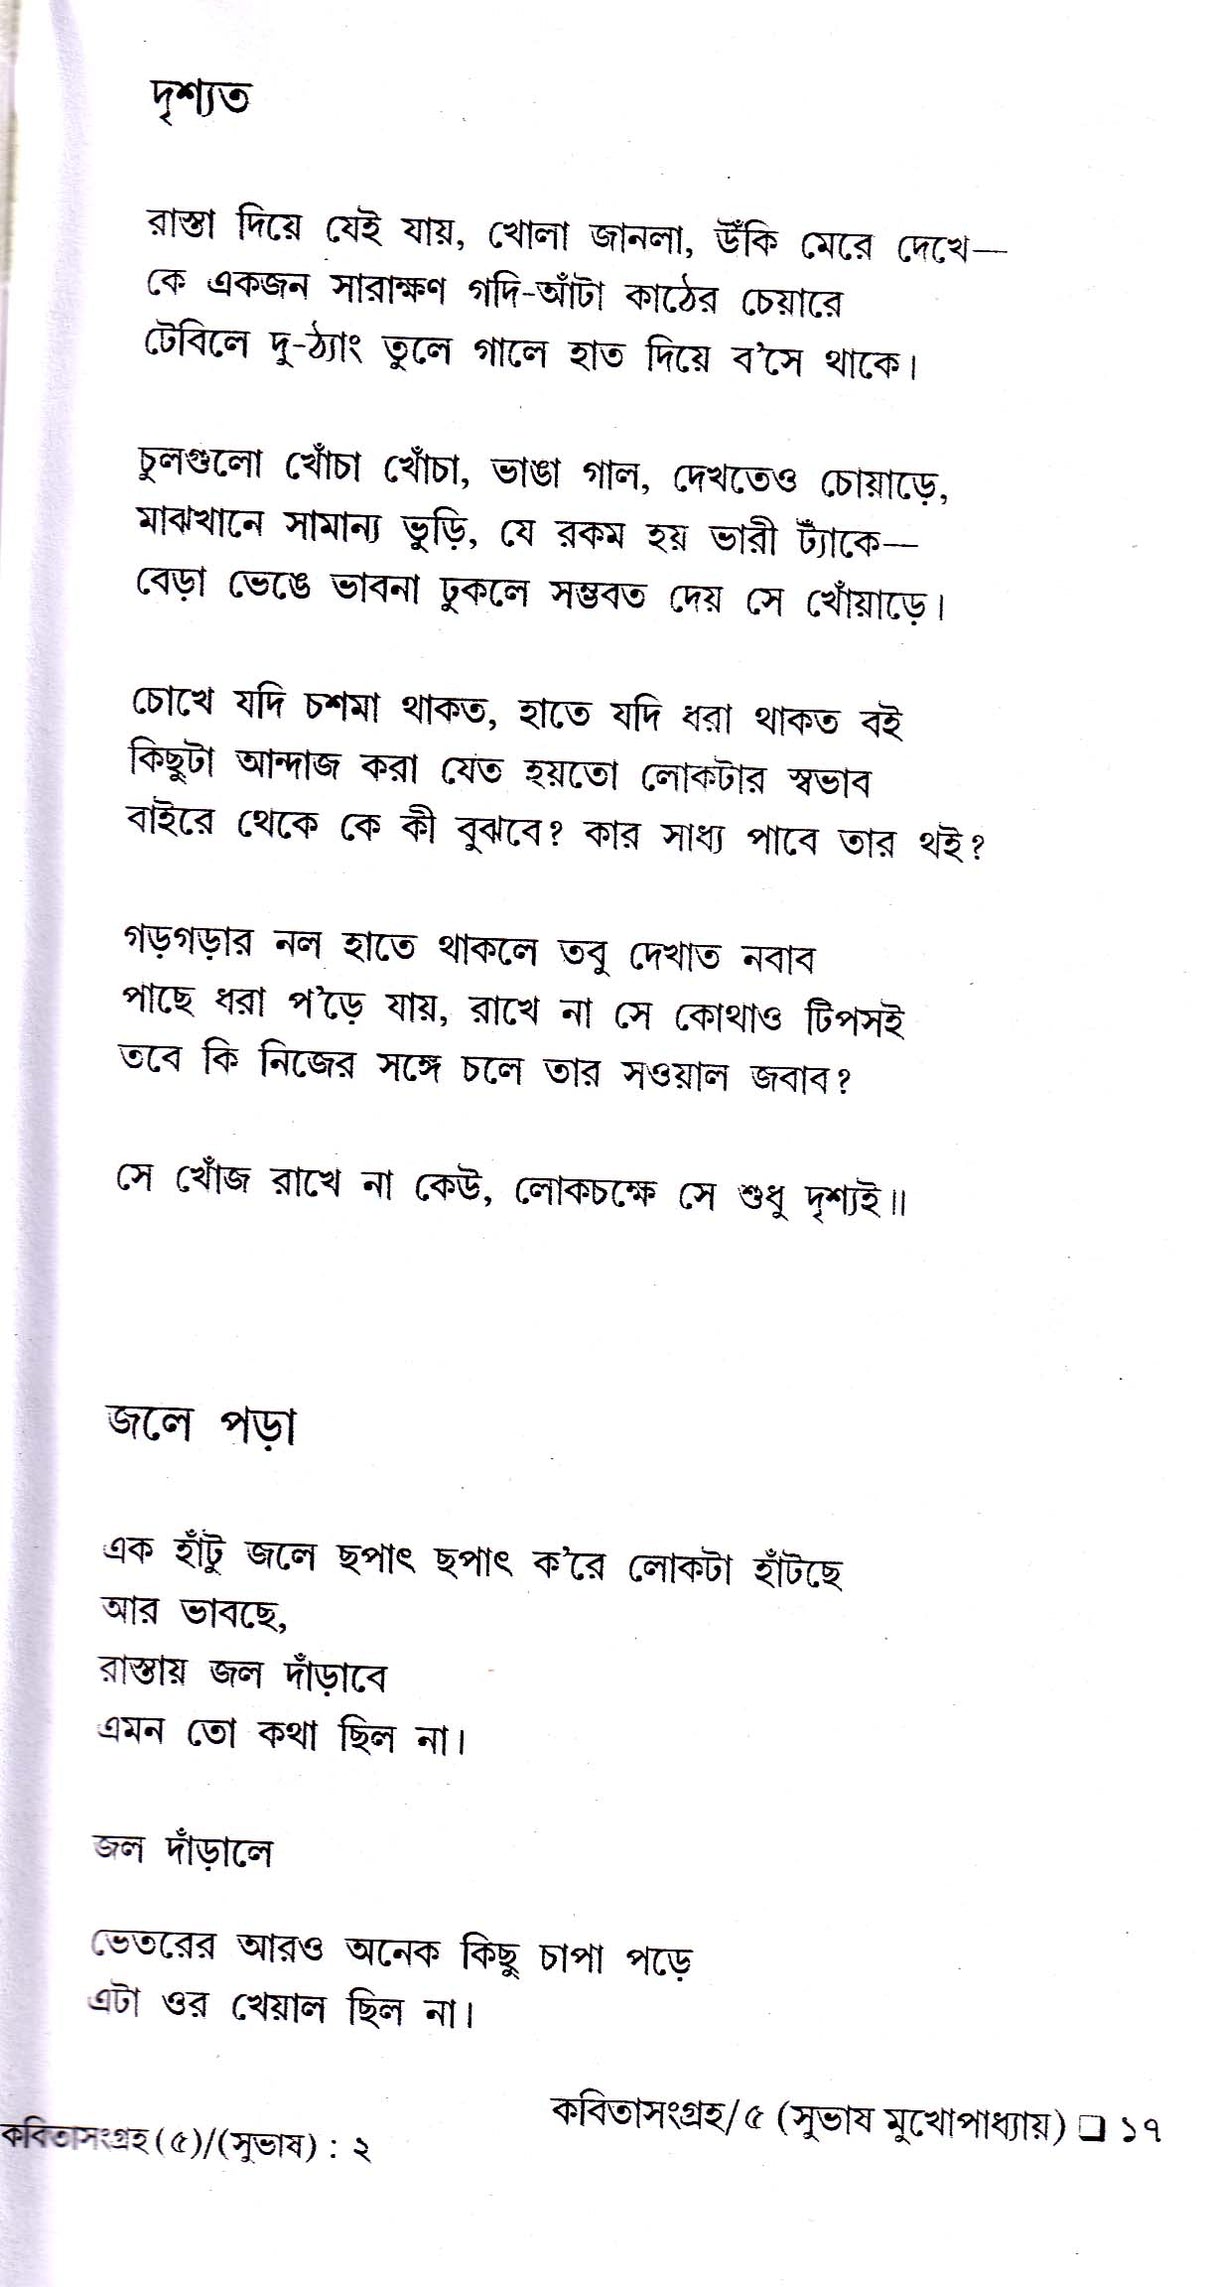 দৃশ্যত
রাস্তা দিয়ে যেই যায়, খোলা জানলা, উঁকি মেরে দেখে—
কে একজন সারাক্ষণ গদি-আঁটা কাঠের চেয়ারে
টেবিলে দু-ঠ্যাং তুলে গালে হাত দিয়ে ব'সে থাকে।
চুলগুলো খোঁচা খোঁচা, ভাঙা গাল, দেখতেও চোয়াড়ে,
মাঝখানে সামান্য ভুড়ি, যে রকম হয় ভারী ট্যাঁকে—
বেড়া ভেঙে ভাবনা ঢুকলে সম্ভবত দেয় সে খোঁয়াড়ে।
চোখে যদি চশমা থাকত, হাতে যদি ধরা থাকত বই
কিছুটা আন্দাজ করা যেত হয়তো লোকটার স্বভাব
বাইরে থেকে কে কী বুঝবে? কার সাধ্য পাবে তার থই?
গড়গড়ার নল হাতে থাকলে তবু দেখাত নবাব
পাছে ধরা প'ড়ে যায়, রাখে না সে কোথাও টিপসই
তবে কি নিজের সঙ্গে চলে তার সওয়াল জবাব?
সে খোঁজ রাখে না কেউ, লোকচক্ষে সে শুধু দৃশ্যই॥
জলে পড়া
এক হাঁটু জলে ছপাৎ ছপাৎ ক'রে লোকটা হাঁটছে
আর ভাবছে,
রাস্তায় জল দাঁড়াবে
এমন তো কথা ছিল না।
জল দাঁড়ালে
ভেতরের আরও অনেক কিছু চাপা পড়ে
এটা ওর খেয়াল ছিল না।
কবিতাসংগ্রহ/৫ (সুভাষ মুখোপাধ্যায়) ❑ ১৭
কবিতাসংগ্রহ(৫)/(সুভাষ) : ২